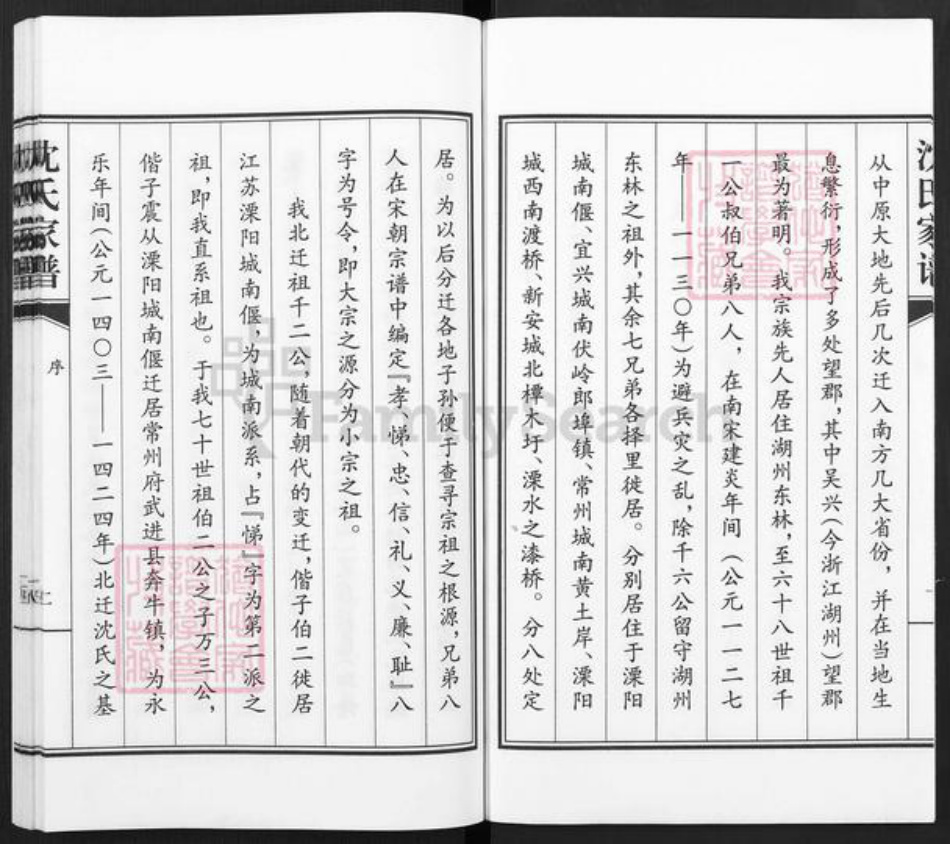 沈氏家谱
从中原大地先后几次迁入南方几大省份，并在当地生
息繁衍，形成了多处望郡，其中吴兴（今浙江湖州）望郡
最为著明。我宗族先人居住湖州东林，至六十八世祖千
一公叔伯兄弟八人，在南宋建炎年间（公元一一二七
年——一一三〇年）为避兵灾之乱，除千六公留守湖州
东林之祖外，其余七兄弟各择里徙居。分别居住于溧阳
城南偃、宜兴城南伏岭郎埠镇、常州城南黄土岸、溧阳
城西南渡桥、新安城北樟木圩、溧水之漆桥。分八处定
居。为以后分迁各地子孙便于查寻宗祖之根源，兄弟八
人在宋朝宗谱中编定『孝、悌、忠、信、礼、义、廉、耻』八
字为号令，即大宗之源分为小宗之祖。
我北迁祖千二公，随着朝代的变迁，偕子伯二徙居
江苏溧阳城南偃，为城南派系，占『悌』字为第二派之
祖，即我直系祖也。于我七十世祖伯二公之子万三公，
偕子震从溧阳城南偃迁居常州府武进县奔牛镇，为永
乐年间（公元一四〇三——一四二四年）北迁沈氏之基
沈氏家谱
序
FamilySearch